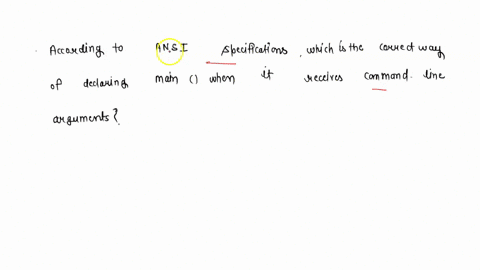 . According to A.N.S.I specifications, which is the correct way
of declaring main () when it receives command line
arguments?